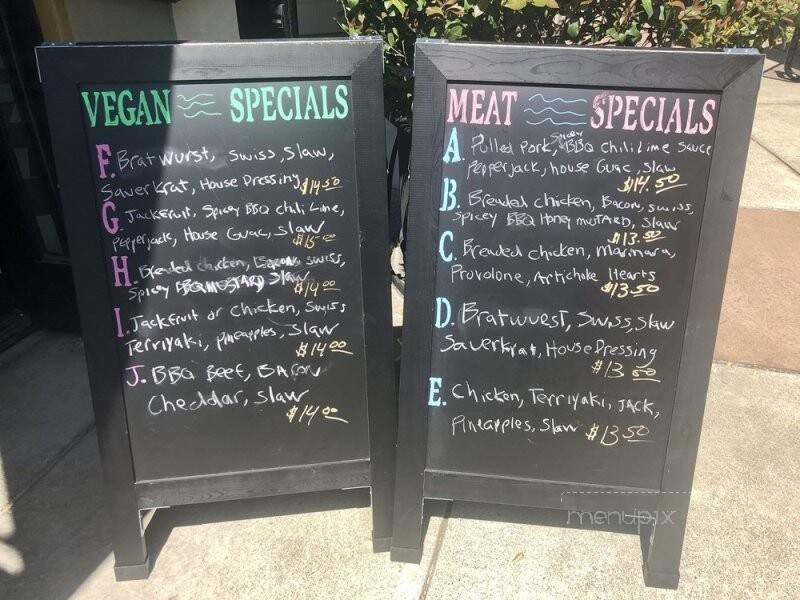 VEGAN SPECIALS
F. Bratwurst, Swiss, Slaw,
Sauerkrat, House Dressing $14.50
G. Jackfruit, Spicy BBQ chili Lime,
Pepperjack, House Guac, Slaw
$15.00
H. Breaded chicken, Bacon, Swiss,
Spicy BBQ MUSTARD Slaw
$14.00
I. Jackfruit or Chicken, Swiss
Terriyaki, Pineapples, Slaw
$14.00
J. BBQ Beef, BACON
Cheddar, Slaw
$14.00
MEAT SPECIALS
A. Pulled Pork, Spicey BBQ Chili Lime Sauce
Pepperjack, house Guac, Slaw
$14.50
B. Breaded chicken, Bacon, Swiss,
Spicey BBQ Honey MUSTARD, Slaw
$13.50
C. Breaded chicken, Marinara,
Provolone, Artichoke Hearts
$13.50
D. Bratwurst, Swiss, Slaw
Sauerkrat, House Dressing
$13.50
E. Chicken, Terriyaki, JACK,
Pineapples, Slaw $13.50
menupix